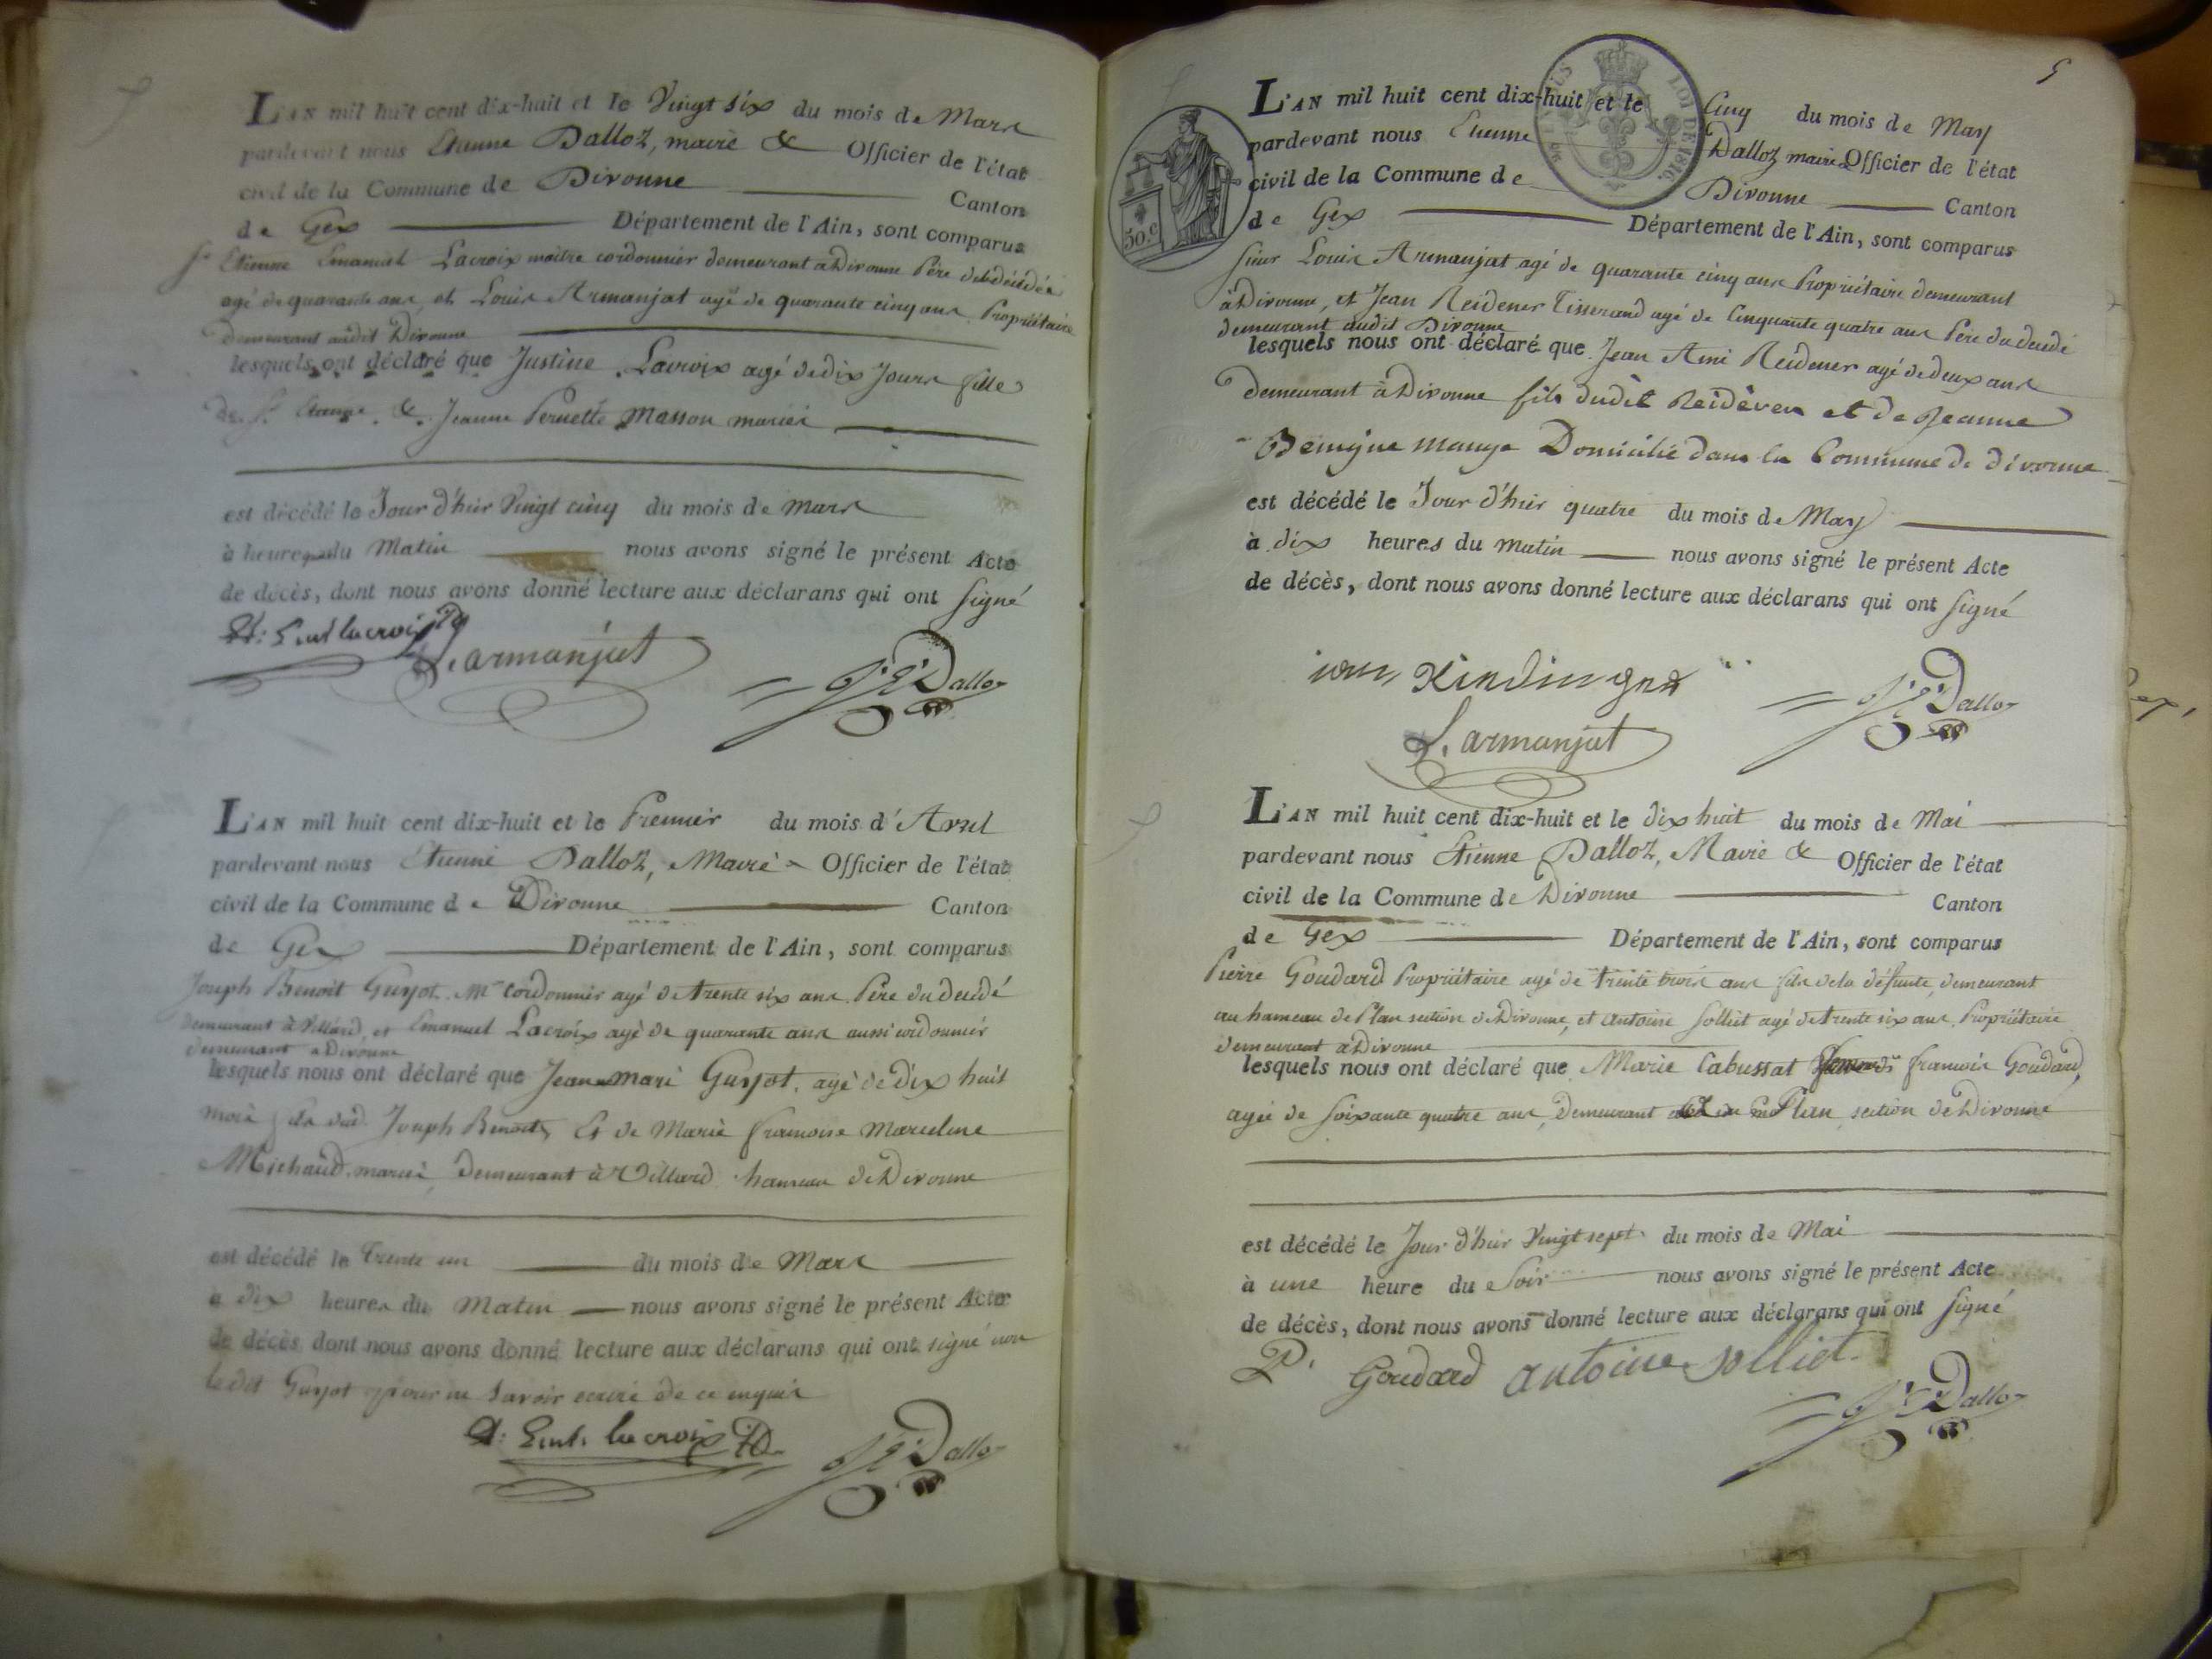 L'AN mil huit cent dix-huit et le Vingt six du mois de Mars
pardevant nous Etienne Dalloz, maire & Officier de l'état
civil de la Commune de Divonne Canton
de Gex Département de l'Ain, sont comparus
Sr Etienne Emanuel Lacroix maitre cordonnier demeurant à Divonne Père de la décédée
agé de quarante ans, et Louis Armanjat agé de quarante cinq ans Propriétaire
demeurant audit Divonne
lesquels ont déclaré que Justine Lacroix agé de dix Jours fille
de Sr Etienne & Jeanne Pernette Masson mariés
est décédé le Jour d'hier Vingt cinq du mois de Mars
à heure du Matin nous avons signé le présent Acte
de décès, dont nous avons donné lecture aux déclarans qui ont signé
Et: Eml lacroix
L. armanjat
Dalloz
L'AN mil huit cent dix-huit et le Premier du mois d'Avril
pardevant nous Etienne Dalloz, Maire Officier de l'état
civil de la Commune de Divonne Canton
de Gex Département de l'Ain, sont comparus
Joseph Benoit Guyot Me cordonnier agé de trente six ans Père du decédé
demeurant à Villard, et Emanuel Lacroix agé de quarante ans aussi cordonnier
demeurant a Divonne
lesquels nous ont déclaré que Jean mari Guyot, agé de dix huit
mois fils dud. Joseph Benoit, Et de Marie francoise Marceline
Michaud mariés, demeurant à Villard hameau de Divonne
est décédé le Trente un du mois de Mars
à dix heures du Matin nous avons signé le présent Acte
de décès dont nous avons donné lecture aux déclarans qui ont signé non
ledit Guyot pour ne savoir ecrire de ce enquis
Et: Eml. lacroix
Dalloz
5
L'AN mil huit cent dix-huit et le Cinq du mois de May
LOI DE 1816.
pardevant nous Etienne Dalloz maire & Officier de l'état
civil de la Commune de Divonne Canton
50.c
de Gex Département de l'Ain, sont comparus
sieur Louis Armanjat agé de quarante cinq ans Propriétaire demeurant
à Divonne, et Jean Reidener Tisserand agé de Cinquante quatre ans Père du decédé
demeurant audit Divonne
lesquels nous ont déclaré que Jean Ami Reidener agé de deux ans
demeurant à Divonne fils dudit Reidener et de Jeanne
Benigne Domicilié dans la Commune de divonne
est décédé le Jour d'hier quatre du mois de May
à dix heures du matin nous avons signé le présent Acte
de décès, dont nous avons donné lecture aux déclarans qui ont signé
L. armanjat
Dalloz
L'AN mil huit cent dix-huit et le dix huit du mois de Mai
pardevant nous Etienne Dalloz, Maire & Officier de l'état
civil de la Commune de Divonne Canton
de Gex Département de l'Ain, sont comparus
Pierre Goudard Propriétaire agé de trente trois ans fils de la défunte, demeurant
au hameau de Plan section de Divonne, et antoine Solliet agé de trente six ans Propriétaire
demeurant à Divonne
lesquels nous ont déclaré que Marie Cabussat francois Goudard,
agée de soixante quatre ans, Demeurant Plan section de Divonne
est décédé le Jour d'hier Vingt sept du mois de Mai
à une heure du Soir nous avons signé le présent Acte
de décès, dont nous avons donné lecture aux déclarans qui ont signé
P. Goudard antoine solliet
Dalloz